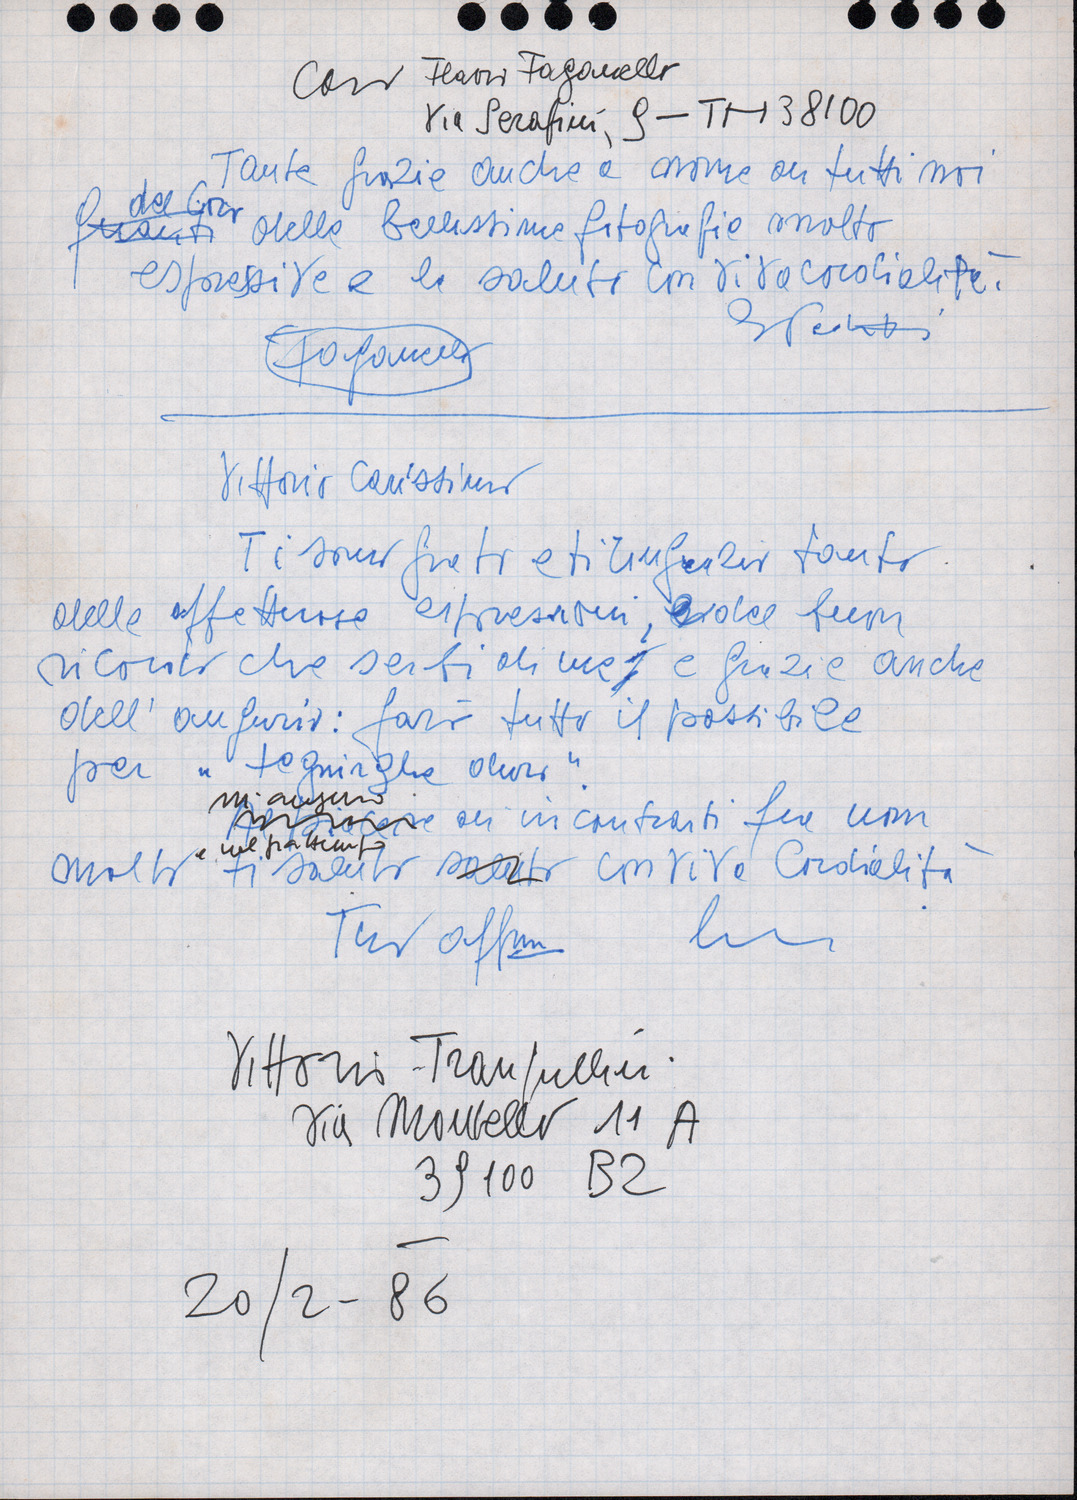 Caro Flavio Faganello
Via Serafini, 9 - TN 38100
Tante grazie anche a nome di tutti noi
del Coro
delle bellissime fotografie molto
espressive e la saluto con viva cordialità.
Faganello
Vittorio Carissimo
Ti sono grato e ti ringrazio tanto
delle affettuose espressioni, e del buon
ricordo che serbi di me, e grazie anche
dell'augurio: farò tutto il possibile
per "tegnirghe duro".
mi auguro
di incontrarti fra non
e nel frattempo
molto ti saluto con viva Cordialità
Tuo affmo
Vittorio Tranquillini
Via Montello 11 A
39100 BZ
20/2-86